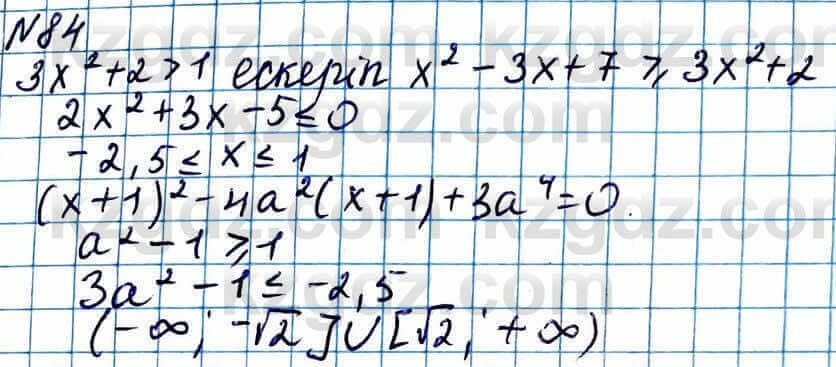 N84
3x²+2>1 ескеріп x²-3x+7⩾3x²+2
2x²+3x-5≤0
-2,5≤x≤1
(x+1)²-4a²(x+1)+3a⁴=0.
a²-1⩾1
3a²-1≤-2,5
(-∞; -√2]∪[√2; +∞)